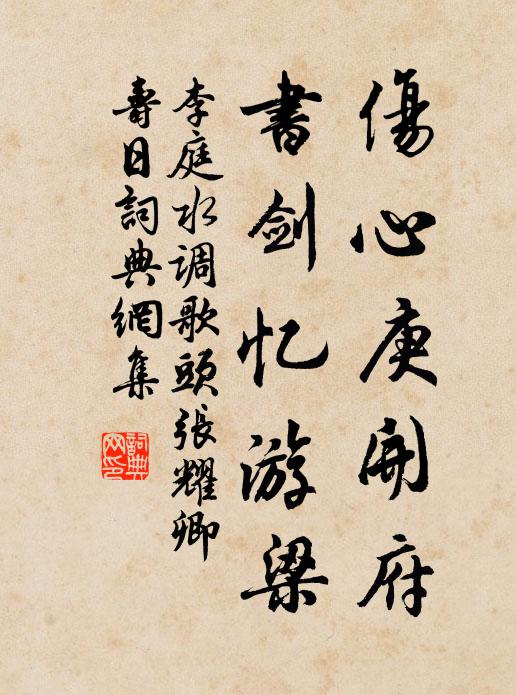 傷心庾開府
書剑忆游梁
李庭水调歌頭張耀卿
壽日詞典網集
詞典網印